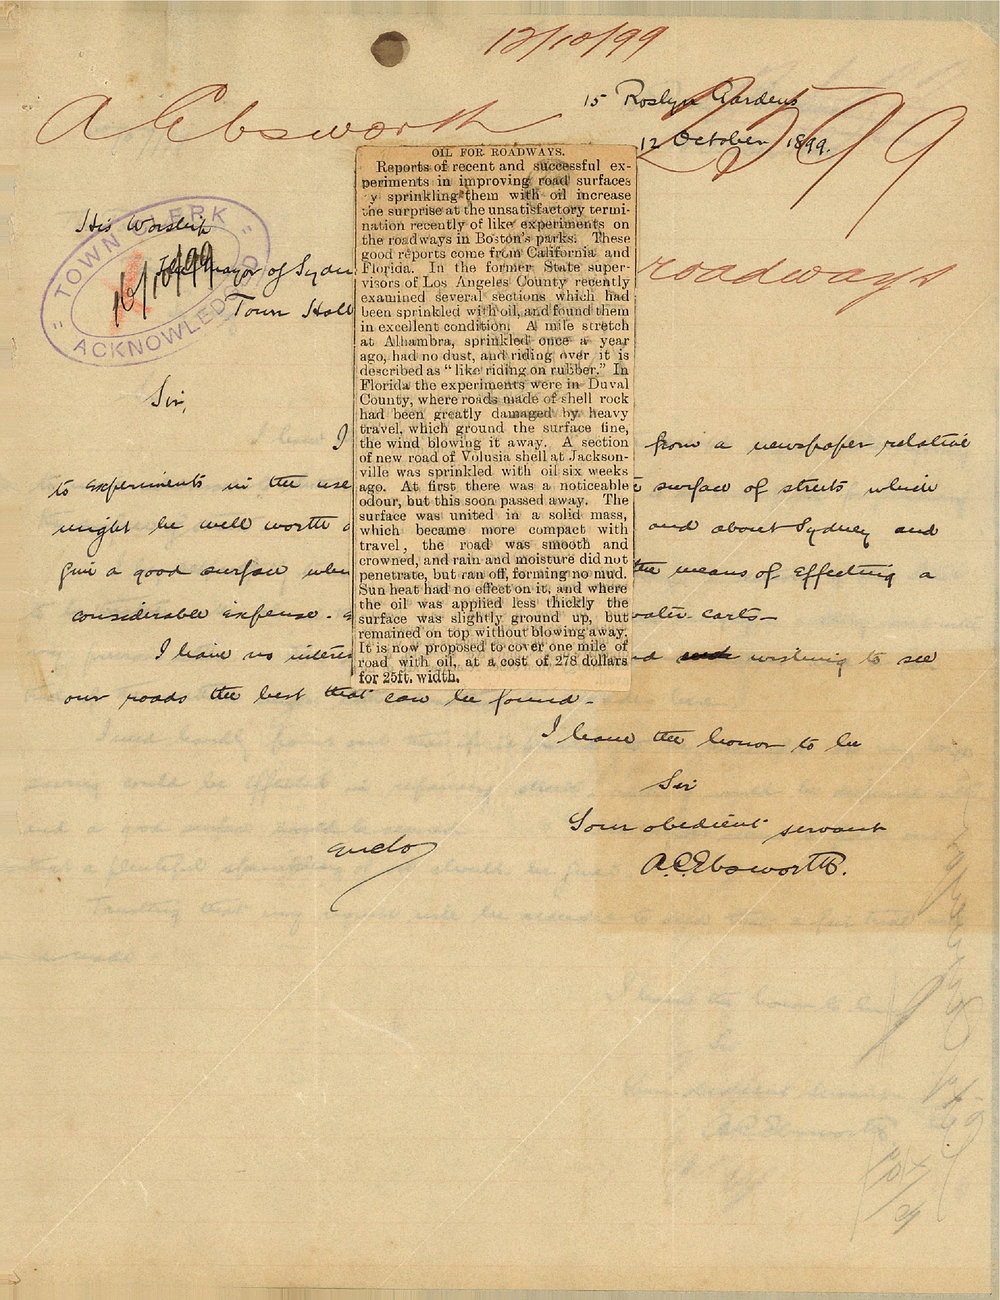 12/10/99
A Ebsworth
2599
15 Roslyn Gardens
12 October 1899.
His Worship
The Mayor of Sydn
Town Hall
TOWN CLERK
16/10/99
ACKNOWLEDGED
roadways
Sir,
I
from a newspaper relative
to experiments in the use
surface of streets which
might be well worth
and about Sydney and
give a good surface when
the means of effecting a
considerable expense.
water carts
I have no interes
wishing to see
our roads the best that can be found.
I have the honor to be
Sir
Your obedient servant
A.C. Ebsworth.
enclo
OIL FOR ROADWAYS.
Reports of recent and successful ex-
periments in improving road surfaces
y sprinkling them with oil increase
the surprise at the unsatisfactory termi-
nation recently of like experiments on
the roadways in Boston's parks. These
good reports come from California and
Florida. In the former State super-
visors of Los Angeles County recently
examined several sections which had
been sprinkled with oil, and found them
in excellent condition. A mile stretch
at Alhambra, sprinkled once a year
ago, had no dust, and riding over it is
described as “like riding on rubber.” In
Florida the experiments were in Duval
County, where roads made of shell rock
had been greatly damaged by heavy
travel, which ground the surface fine,
the wind blowing it away. A section
of new road of Volusia shell at Jackson-
ville was sprinkled with oil six weeks
ago. At first there was a noticeable
odour, but this soon passed away. The
surface was united in a solid mass,
which became more compact with
travel, the road was smooth and
crowned, and rain and moisture did not
penetrate, but ran off, forming no mud.
Sun heat had no effect on it, and where
the oil was applied less thickly the
surface was slightly ground up, but
remained on top without blowing away.
It is now proposed to cover one mile of
road with oil, at a cost of 278 dollars
for 25ft. width.